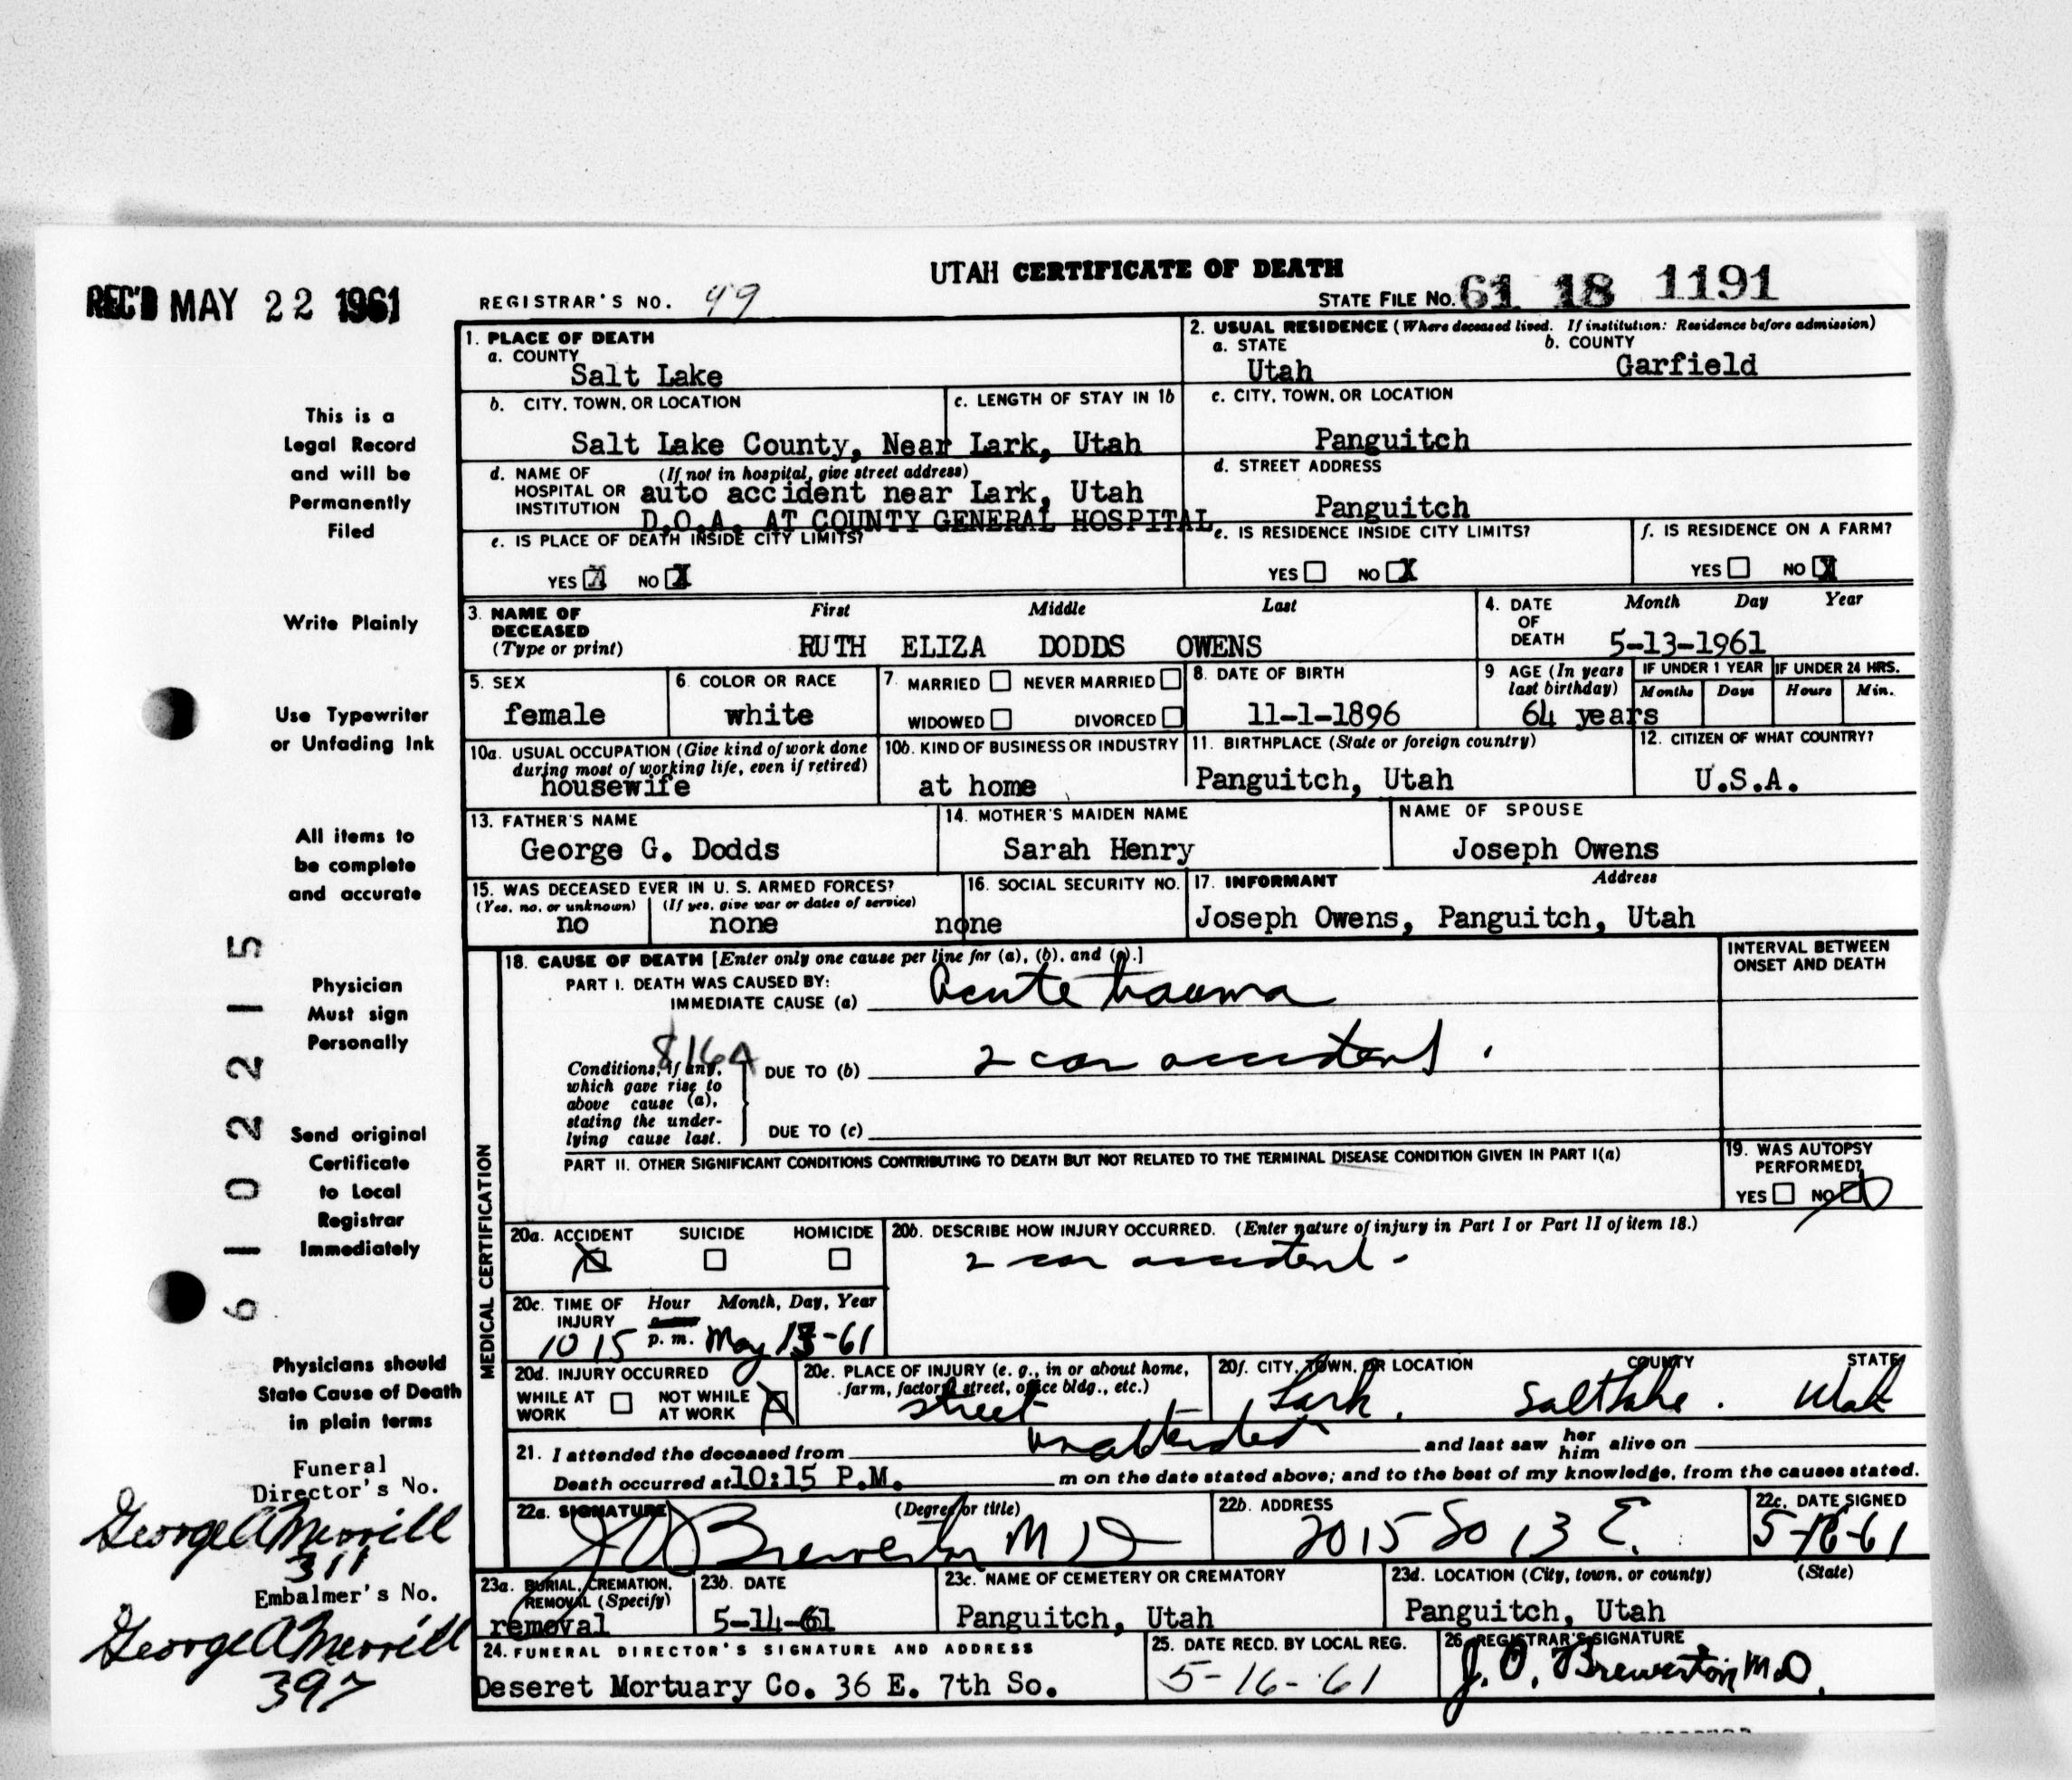 UTAH CERTIFICATE OF DEATH
REC'D MAY 22 1961
REGISTRAR'S NO. 49
STATE FILE No. 61 18 1191
1. PLACE OF DEATH
a. COUNTY
Salt Lake
2. USUAL RESIDENCE (Where deceased lived. If institution: Residence before admission)
a. STATE
Utah
b. COUNTY
Garfield
b. CITY, TOWN, OR LOCATION
Salt Lake County, Near Lark, Utah
c. LENGTH OF STAY IN 1b
c. CITY, TOWN, OR LOCATION
Panguitch
d. NAME OF HOSPITAL OR INSTITUTION (If not in hospital, give street address)
auto accident near Lark, Utah
D.O.A. AT COUNTY GENERAL HOSPITAL
d. STREET ADDRESS
Panguitch
e. IS PLACE OF DEATH INSIDE CITY LIMITS?
YES X NO X
e. IS RESIDENCE INSIDE CITY LIMITS?
YES NO X
f. IS RESIDENCE ON A FARM?
YES NO X
3. NAME OF DECEASED (Type or print)
First Middle Last
RUTH ELIZA DODDS OWENS
4. DATE OF DEATH
Month Day Year
5-13-1961
5. SEX
female
6. COLOR OR RACE
white
7. MARRIED NEVER MARRIED
WIDOWED DIVORCED
8. DATE OF BIRTH
11-1-1896
9 AGE (In years last birthday)
64 years
IF UNDER 1 YEAR
Months Days
IF UNDER 24 HRS.
Hours Min.
10a. USUAL OCCUPATION (Give kind of work done during most of working life, even if retired)
housewife
10b. KIND OF BUSINESS OR INDUSTRY
at home
11. BIRTHPLACE (State or foreign country)
Panguitch, Utah
12. CITIZEN OF WHAT COUNTRY?
U.S.A.
13. FATHER'S NAME
George G. Dodds
14. MOTHER'S MAIDEN NAME
Sarah Henry
NAME OF SPOUSE
Joseph Owens
15. WAS DECEASED EVER IN U. S. ARMED FORCES?
(Yes, no, or unknown) (If yes, give war or dates of service)
no none
16. SOCIAL SECURITY NO.
none
17. INFORMANT Address
Joseph Owens, Panguitch, Utah
MEDICAL CERTIFICATION
18. CAUSE OF DEATH [Enter only one cause per line for (a), (b), and (c).]
INTERVAL BETWEEN ONSET AND DEATH
PART I. DEATH WAS CAUSED BY:
IMMEDIATE CAUSE (a) Acute trauma
816A
Conditions, if any, which gave rise to above cause (a), stating the underlying cause last.
DUE TO (b) 2 car accident.
DUE TO (c)
PART II. OTHER SIGNIFICANT CONDITIONS CONTRIBUTING TO DEATH BUT NOT RELATED TO THE TERMINAL DISEASE CONDITION GIVEN IN PART I(a)
19. WAS AUTOPSY PERFORMED?
YES NO
20a. ACCIDENT SUICIDE HOMICIDE
X
20b. DESCRIBE HOW INJURY OCCURRED. (Enter nature of injury in Part I or Part II of item 18.)
2 car accident-
20c. TIME OF INJURY Hour Month, Day, Year
10 15 p. m. May 13-61
20d. INJURY OCCURRED
WHILE AT WORK NOT WHILE AT WORK X
20e. PLACE OF INJURY (e. g., in or about home, farm, factory, street, office bldg., etc.)
street
20f. CITY, TOWN, OR LOCATION COUNTY STATE
Lark, Salt Lake. Utah
21. I attended the deceased from unattended and last saw her him alive on
Death occurred at 10:15 P.M. m on the date stated above; and to the best of my knowledge, from the causes stated.
22a. SIGNATURE (Degree or title)
J O Brewerton M D
22b. ADDRESS
2015 So 13 E.
22c. DATE SIGNED
5-16-61
23a. BURIAL, CREMATION, REMOVAL (Specify)
removal
23b. DATE
5-14-61
23c. NAME OF CEMETERY OR CREMATORY
Panguitch, Utah
23d. LOCATION (City, town, or county) (State)
Panguitch, Utah
24. FUNERAL DIRECTOR'S SIGNATURE AND ADDRESS
Deseret Mortuary Co. 36 E. 7th So.
25. DATE RECD. BY LOCAL REG.
5-16-61
26. REGISTRAR'S SIGNATURE
J. O. Brewerton M.D.
This is a
Legal Record
and will be
Permanently
Filed
Write Plainly
Use Typewriter
or Unfading Ink
All items to
be complete
and accurate
Physician
Must sign
Personally
Send original
Certificate
to Local
Registrar
Immediately
Physicians should
State Cause of Death
in plain terms
Funeral
Director's No.
George A Merrill
311
Embalmer's No.
George A Merrill
397
6102215